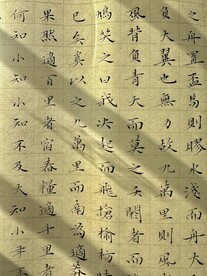 之舟置盃焉則膠水淺而舟大
負大翼也無力故九萬里則風
風背負青天而莫之夭閼者而
鳩笑之曰我決起而飛搶榆枋時
已矣奚以之九萬里而南為適莽
果然適百里者宿舂糧適千里者
何知小知小知不及大知小年不